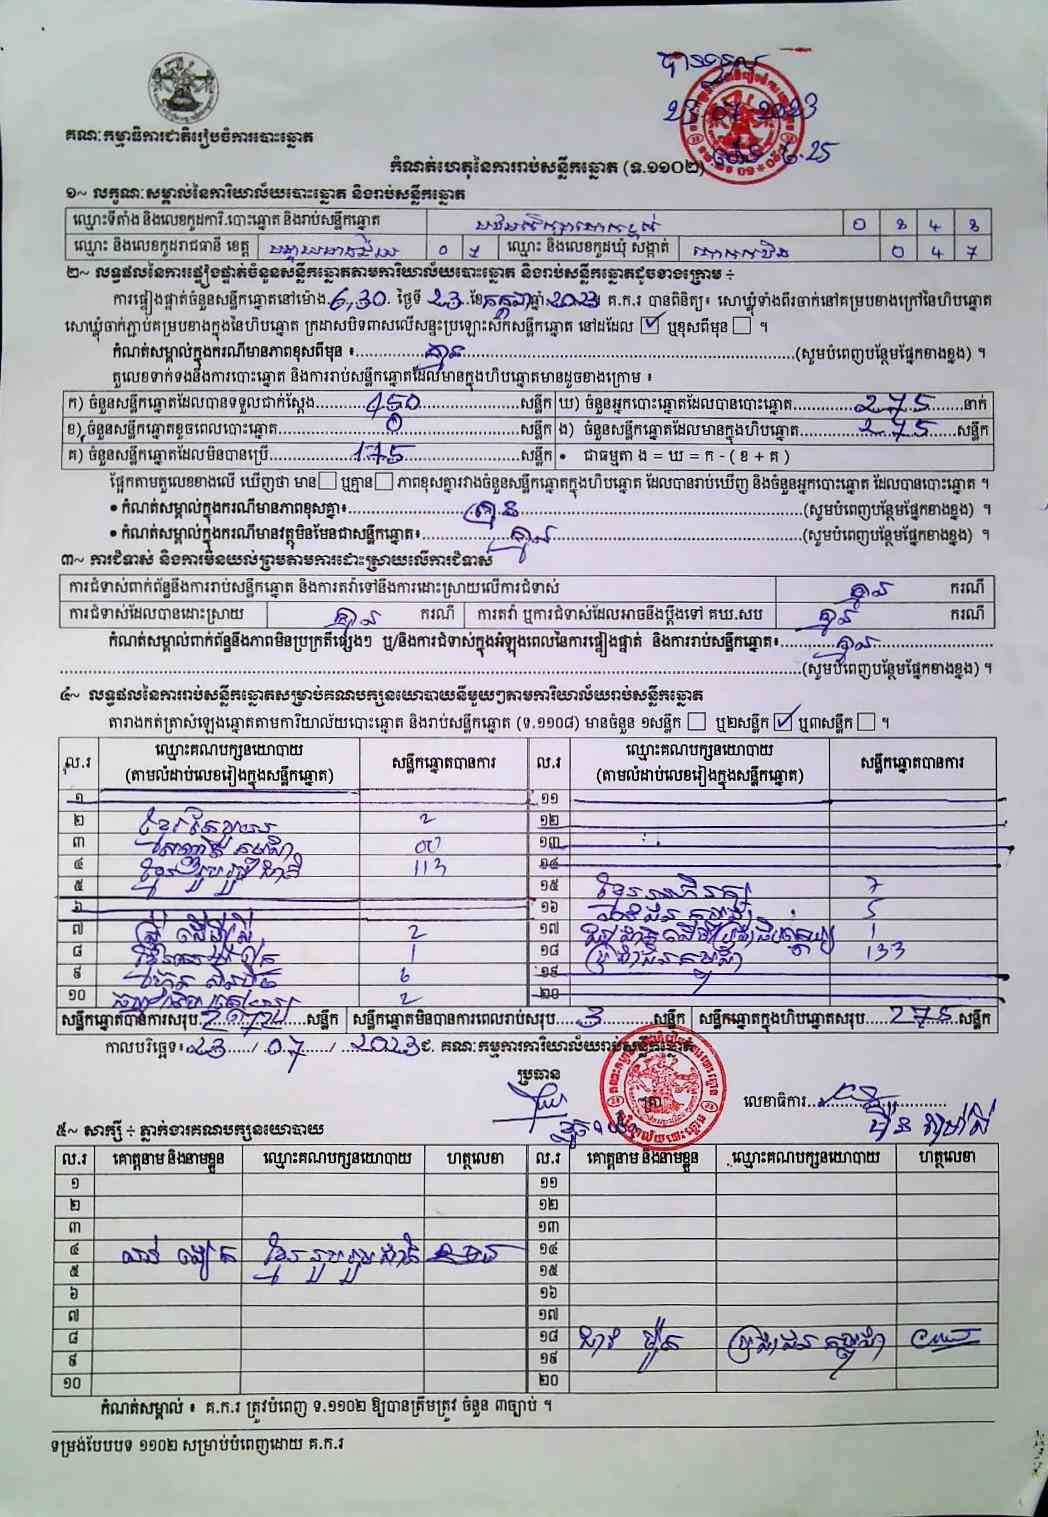 បានទទួល
23 07 2023
ម៉ោង 6.25
គណៈកម្មាធិការជាតិរៀបចំការបោះឆ្នោត
កំណត់ហេតុនៃការរាប់សន្លឹកឆ្នោត (ទ.១១០២)
១~ លក្ខណៈសម្គាល់នៃការិយាល័យបោះឆ្នោត និងរាប់សន្លឹកឆ្នោត
ឈ្មោះទីតាំង និងលេខកូដការិ.បោះឆ្នោត និងរាប់សន្លឹកឆ្នោត
ឈ្មោះ និងលេខកូដរាជធានី ខេត្ត បន្ទាយមានជ័យ 0 1 ឈ្មោះ និងលេខកូដឃុំ សង្កាត់ 0 4 7
២~ លទ្ធផលនៃការផ្ទៀងផ្ទាត់ចំនួនសន្លឹកឆ្នោតតាមការិយាល័យបោះឆ្នោត និងរាប់សន្លឹកឆ្នោតដូចខាងក្រោម ៖
ការផ្ទៀងផ្ទាត់ចំនួនសន្លឹកឆ្នោតនៅម៉ោង 6,30 ថ្ងៃទី 23 ខែ កក្កដា ឆ្នាំ 2023 គ.ក.រ បានពិនិត្យ៖ សោឃ្លុំទាំងពីរចាក់នៅគម្របខាងក្រៅនៃហិបឆ្នោត
សោឃ្លុំចាក់ភ្ជាប់គម្របខាងក្នុងនៃហិបឆ្នោត ក្រដាសបិទពាសលើសន្ទះប្រឡោះស៊កសន្លឹកឆ្នោត នៅដដែល ☑ ឬខុសពីមុន ☐ ។
កំណត់សម្គាល់ក្នុងករណីមានភាពខុសពីមុន ៖ គ្មាន (សូមបំពេញបន្ថែមផ្នែកខាងខ្នង) ។
តួលេខទាក់ទងនឹងការបោះឆ្នោត និងការរាប់សន្លឹកឆ្នោតដែលមានក្នុងហិបឆ្នោតមានដូចខាងក្រោម ៖
ក) ចំនួនសន្លឹកឆ្នោតដែលបានទទួលជាក់ស្តែង 450 សន្លឹក ឃ) ចំនួនអ្នកបោះឆ្នោតដែលបានបោះឆ្នោត 275 នាក់
ខ) ចំនួនសន្លឹកឆ្នោតខូចពេលបោះឆ្នោត 0 សន្លឹក ង) ចំនួនសន្លឹកឆ្នោតដែលមានក្នុងហិបឆ្នោត 275 សន្លឹក
គ) ចំនួនសន្លឹកឆ្នោតដែលមិនបានប្រើ 175 សន្លឹក • ជាធម្មតា ង = ឃ = ក - ( ខ + គ )
ផ្អែកតាមតួលេខខាងលើ ឃើញថា មាន ☐ ឬគ្មាន ☐ ភាពខុសគ្នារវាងចំនួនសន្លឹកឆ្នោតក្នុងហិបឆ្នោត ដែលបានរាប់ឃើញ និងចំនួនអ្នកបោះឆ្នោត ដែលបានបោះឆ្នោត ។
• កំណត់សម្គាល់ក្នុងករណីមានភាពខុសគ្នា៖ គ្មាន (សូមបំពេញបន្ថែមផ្នែកខាងខ្នង) ។
• កំណត់សម្គាល់ក្នុងករណីមានវត្ថុមិនមែនជាសន្លឹកឆ្នោត៖ គ្មាន (សូមបំពេញបន្ថែមផ្នែកខាងខ្នង) ។
៣~ ការជំទាស់ និងការមិនយល់ព្រមតាមការដោះស្រាយលើការជំទាស់
ការជំទាស់ពាក់ព័ន្ធនឹងការរាប់សន្លឹកឆ្នោត និងការតវ៉ាទៅនឹងការដោះស្រាយលើការជំទាស់ គ្មាន ករណី
ការជំទាស់ដែលបានដោះស្រាយ គ្មាន ករណី ការតវ៉ា ឬការជំទាស់ដែលអាចនឹងប្តឹងទៅ គឃ.សប គ្មាន ករណី
កំណត់សម្គាល់ពាក់ព័ន្ធនឹងភាពមិនប្រក្រតីផ្សេងៗ ឬ/និងការជំទាស់ក្នុងអំឡុងពេលនៃការផ្ទៀងផ្ទាត់ និងការរាប់សន្លឹកឆ្នោត៖ គ្មាន
(សូមបំពេញបន្ថែមផ្នែកខាងខ្នង) ។
៤~ លទ្ធផលនៃការរាប់សន្លឹកឆ្នោតសម្រាប់គណបក្សនយោបាយនីមួយៗតាមការិយាល័យរាប់សន្លឹកឆ្នោត
តារាងកត់ត្រាសំឡេងឆ្នោតតាមការិយាល័យបោះឆ្នោត និងរាប់សន្លឹកឆ្នោត (ទ.១១០៨) មានចំនួន ១សន្លឹក ☐ ឬ២សន្លឹក ☑ ឬ៣សន្លឹក ☐ ។
ល.រ ឈ្មោះគណបក្សនយោបាយ (តាមលំដាប់លេខរៀងក្នុងសន្លឹកឆ្នោត) សន្លឹកឆ្នោតបានការ ល.រ ឈ្មោះគណបក្សនយោបាយ (តាមលំដាប់លេខរៀងក្នុងសន្លឹកឆ្នោត) សន្លឹកឆ្នោតបានការ
១ ១១
២ 2 ១២
៣ ១៣
៤ ខ្មែររួបរួមជាតិ 113 ១៤
៥ ១៥ 7
៦ ១៦ 5
៧ 2 ១៧ 1
៨ 1 ១៨ ប្រជាជនកម្ពុជា 133
៩ 6 ១៩
១០ 2 ២០
សន្លឹកឆ្នោតបានការសរុប សន្លឹក សន្លឹកឆ្នោតមិនបានការពេលរាប់សរុប 3 សន្លឹក សន្លឹកឆ្នោតក្នុងហិបឆ្នោតសរុប 275 សន្លឹក
កាលបរិច្ឆេទ៖ 23 / 07 / 2023 គណៈកម្មការការិយាល័យរាប់សន្លឹកឆ្នោត
ប្រធាន ត្រា លេខាធិការ
៥~ សាក្សី ៖ ភ្នាក់ងារគណបក្សនយោបាយ
ល.រ គោត្តនាម និងនាមខ្លួន ឈ្មោះគណបក្សនយោបាយ ហត្ថលេខា ល.រ គោត្តនាម និងនាមខ្លួន ឈ្មោះគណបក្សនយោបាយ ហត្ថលេខា
១ ១១
២ ១២
៣ ១៣
៤ ខ្មែររួបរួមជាតិ ១៤
៥ ១៥
៦ ១៦
៧ ១៧
៨ ១៨ ប្រជាជនកម្ពុជា
៩ ១៩
១០ ២០
កំណត់សម្គាល់ ៖ គ.ក.រ ត្រូវបំពេញ ទ.១១០២ ឱ្យបានត្រឹមត្រូវ ចំនួន ៣ច្បាប់ ។
ទម្រង់បែបបទ ១១០២ សម្រាប់បំពេញដោយ គ.ក.រ